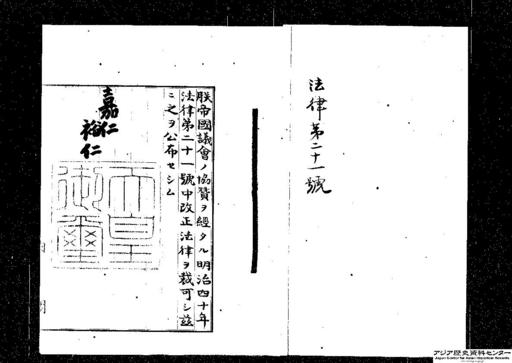 法律第二十一號
朕帝國議會ノ協贊ヲ經タル明治四十年
法律第二十一號中改正法律ヲ裁可シ茲
ニ之ヲ公布セシム
嘉仁
裕仁
天皇
御璽
アジア歴史資料センター
Japan Center for Asian Historical Records